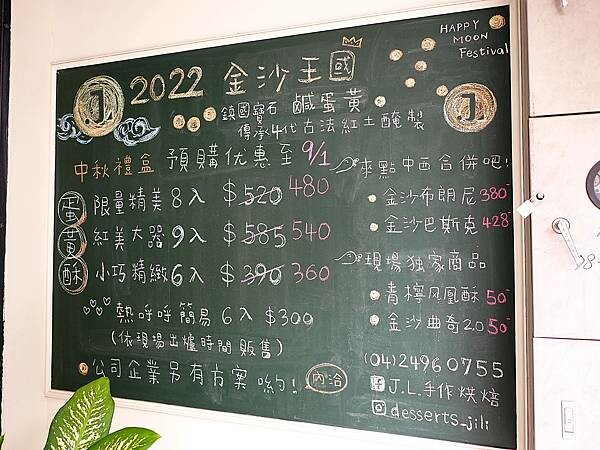 HAPPY
MOON
Festival
J.
2022 金沙王國
J.
鎮國寶石 鹹蛋黃
傳承4代古法紅土醃製
中秋禮盒 預購优惠至 9/1
蛋黃酥
限量精美 8入 $520 480
紅美大器 9入 $585 540
小巧精緻 6入 $390 360
熱呼呼簡易 6入 $300
(依現場出爐時間販售)
公司企業另有方案喲! 內洽
來點中西合併吧!
金沙布朗尼 380-
金沙巴斯克 428-
現場独家商品
青檸凤凰酥 50-
金沙曲奇2.0 50-
(04)24960755
J.L.手作烘焙
desserts_jili